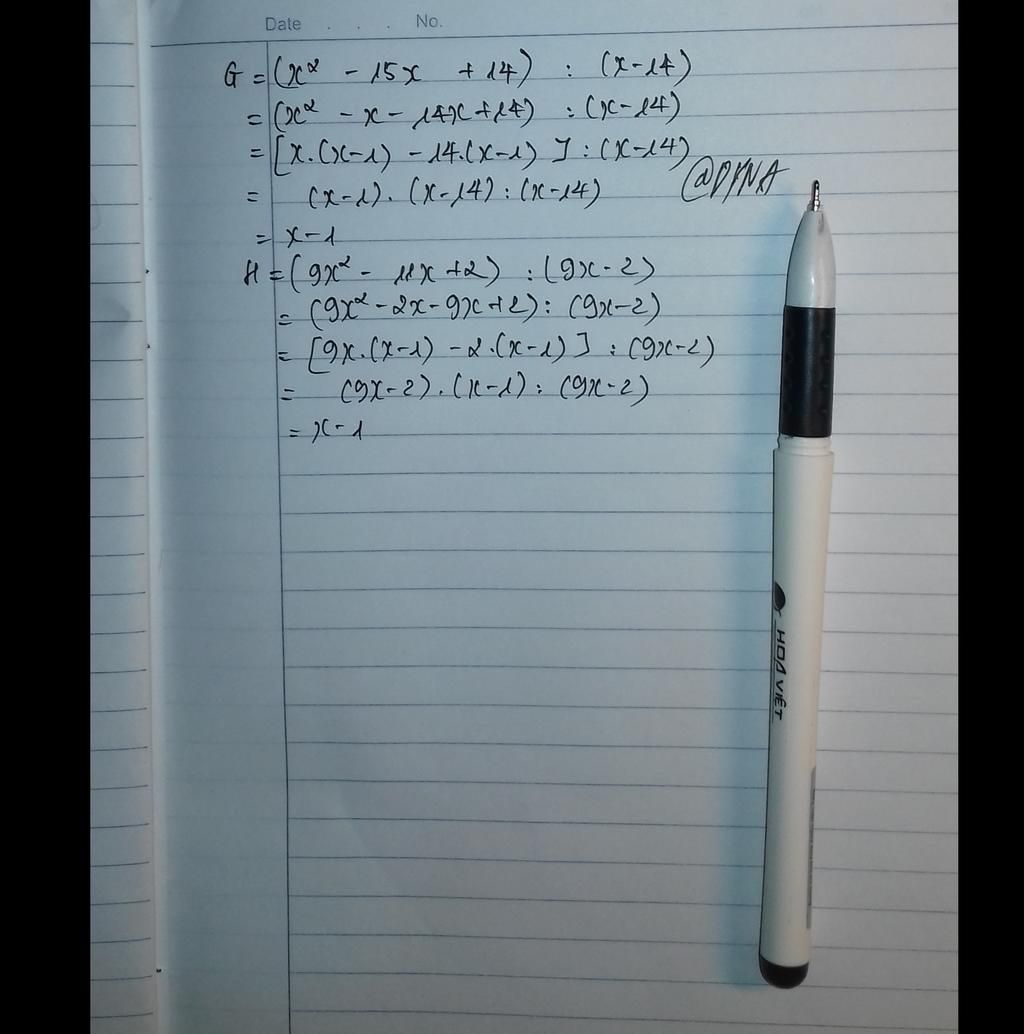 Date . . . No.
G = (x² - 15x + 14) : (x-14)
= (x² - x - 14x + 14) : (x-14)
= [x.(x-1) - 14.(x-1)] : (x-14)
= (x-1).(x-14) : (x-14)
@DYNA
= x-1
H = (9x² - 11x + 2) : (9x-2)
= (9x² - 2x - 9x + 2) : (9x-2)
= [9x.(x-1) - 2.(x-1)] : (9x-2)
= (9x-2).(x-1) : (9x-2)
= x-1
HOA VIỆT